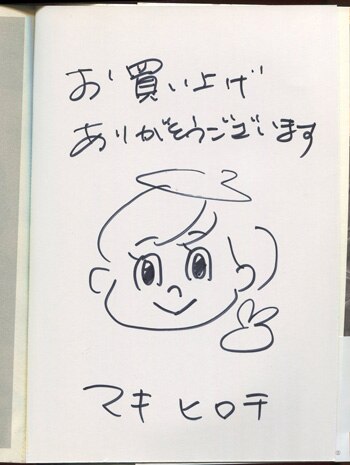 お買い上げ
ありがとうございます
マキ ヒロチ